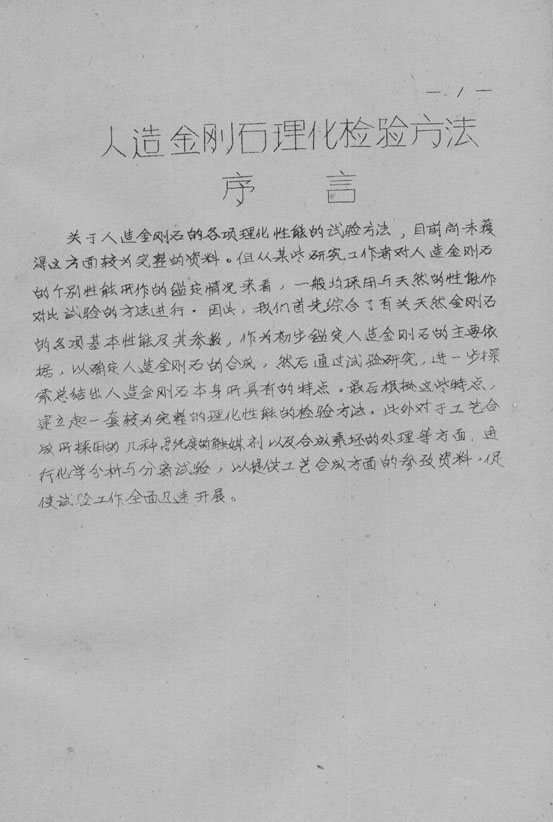 — 1 —
人造金刚石理化检验方法
序 言
关于人造金刚石的各项理化性能的试验方法，目前尚未获
得这方面较为完整的资料。但从某些研究工作者对人造金刚石
的个别性能所作的鑑定情况来看，一般均採用与天然的性能作
对比试验的方法进行。因此，我们首先综合了有关天然金刚石
的各项基本性能及其参数，作为初步鑑定人造金刚石的主要依
据，以确定人造金刚石的合成，然后通过试验研究，进一步探
索总结出人造金刚石本身所具有的特点。最后根据这些特点，
建立起一套较为完整的理化性能的检验方法。此外对于工艺合
成所採用的几种高纯度的触媒剂以及合成素坯的处理等方面，进
行化学分析与分离试验，以提供工艺合成方面的参考资料，促
使试验工作全面迅速开展。